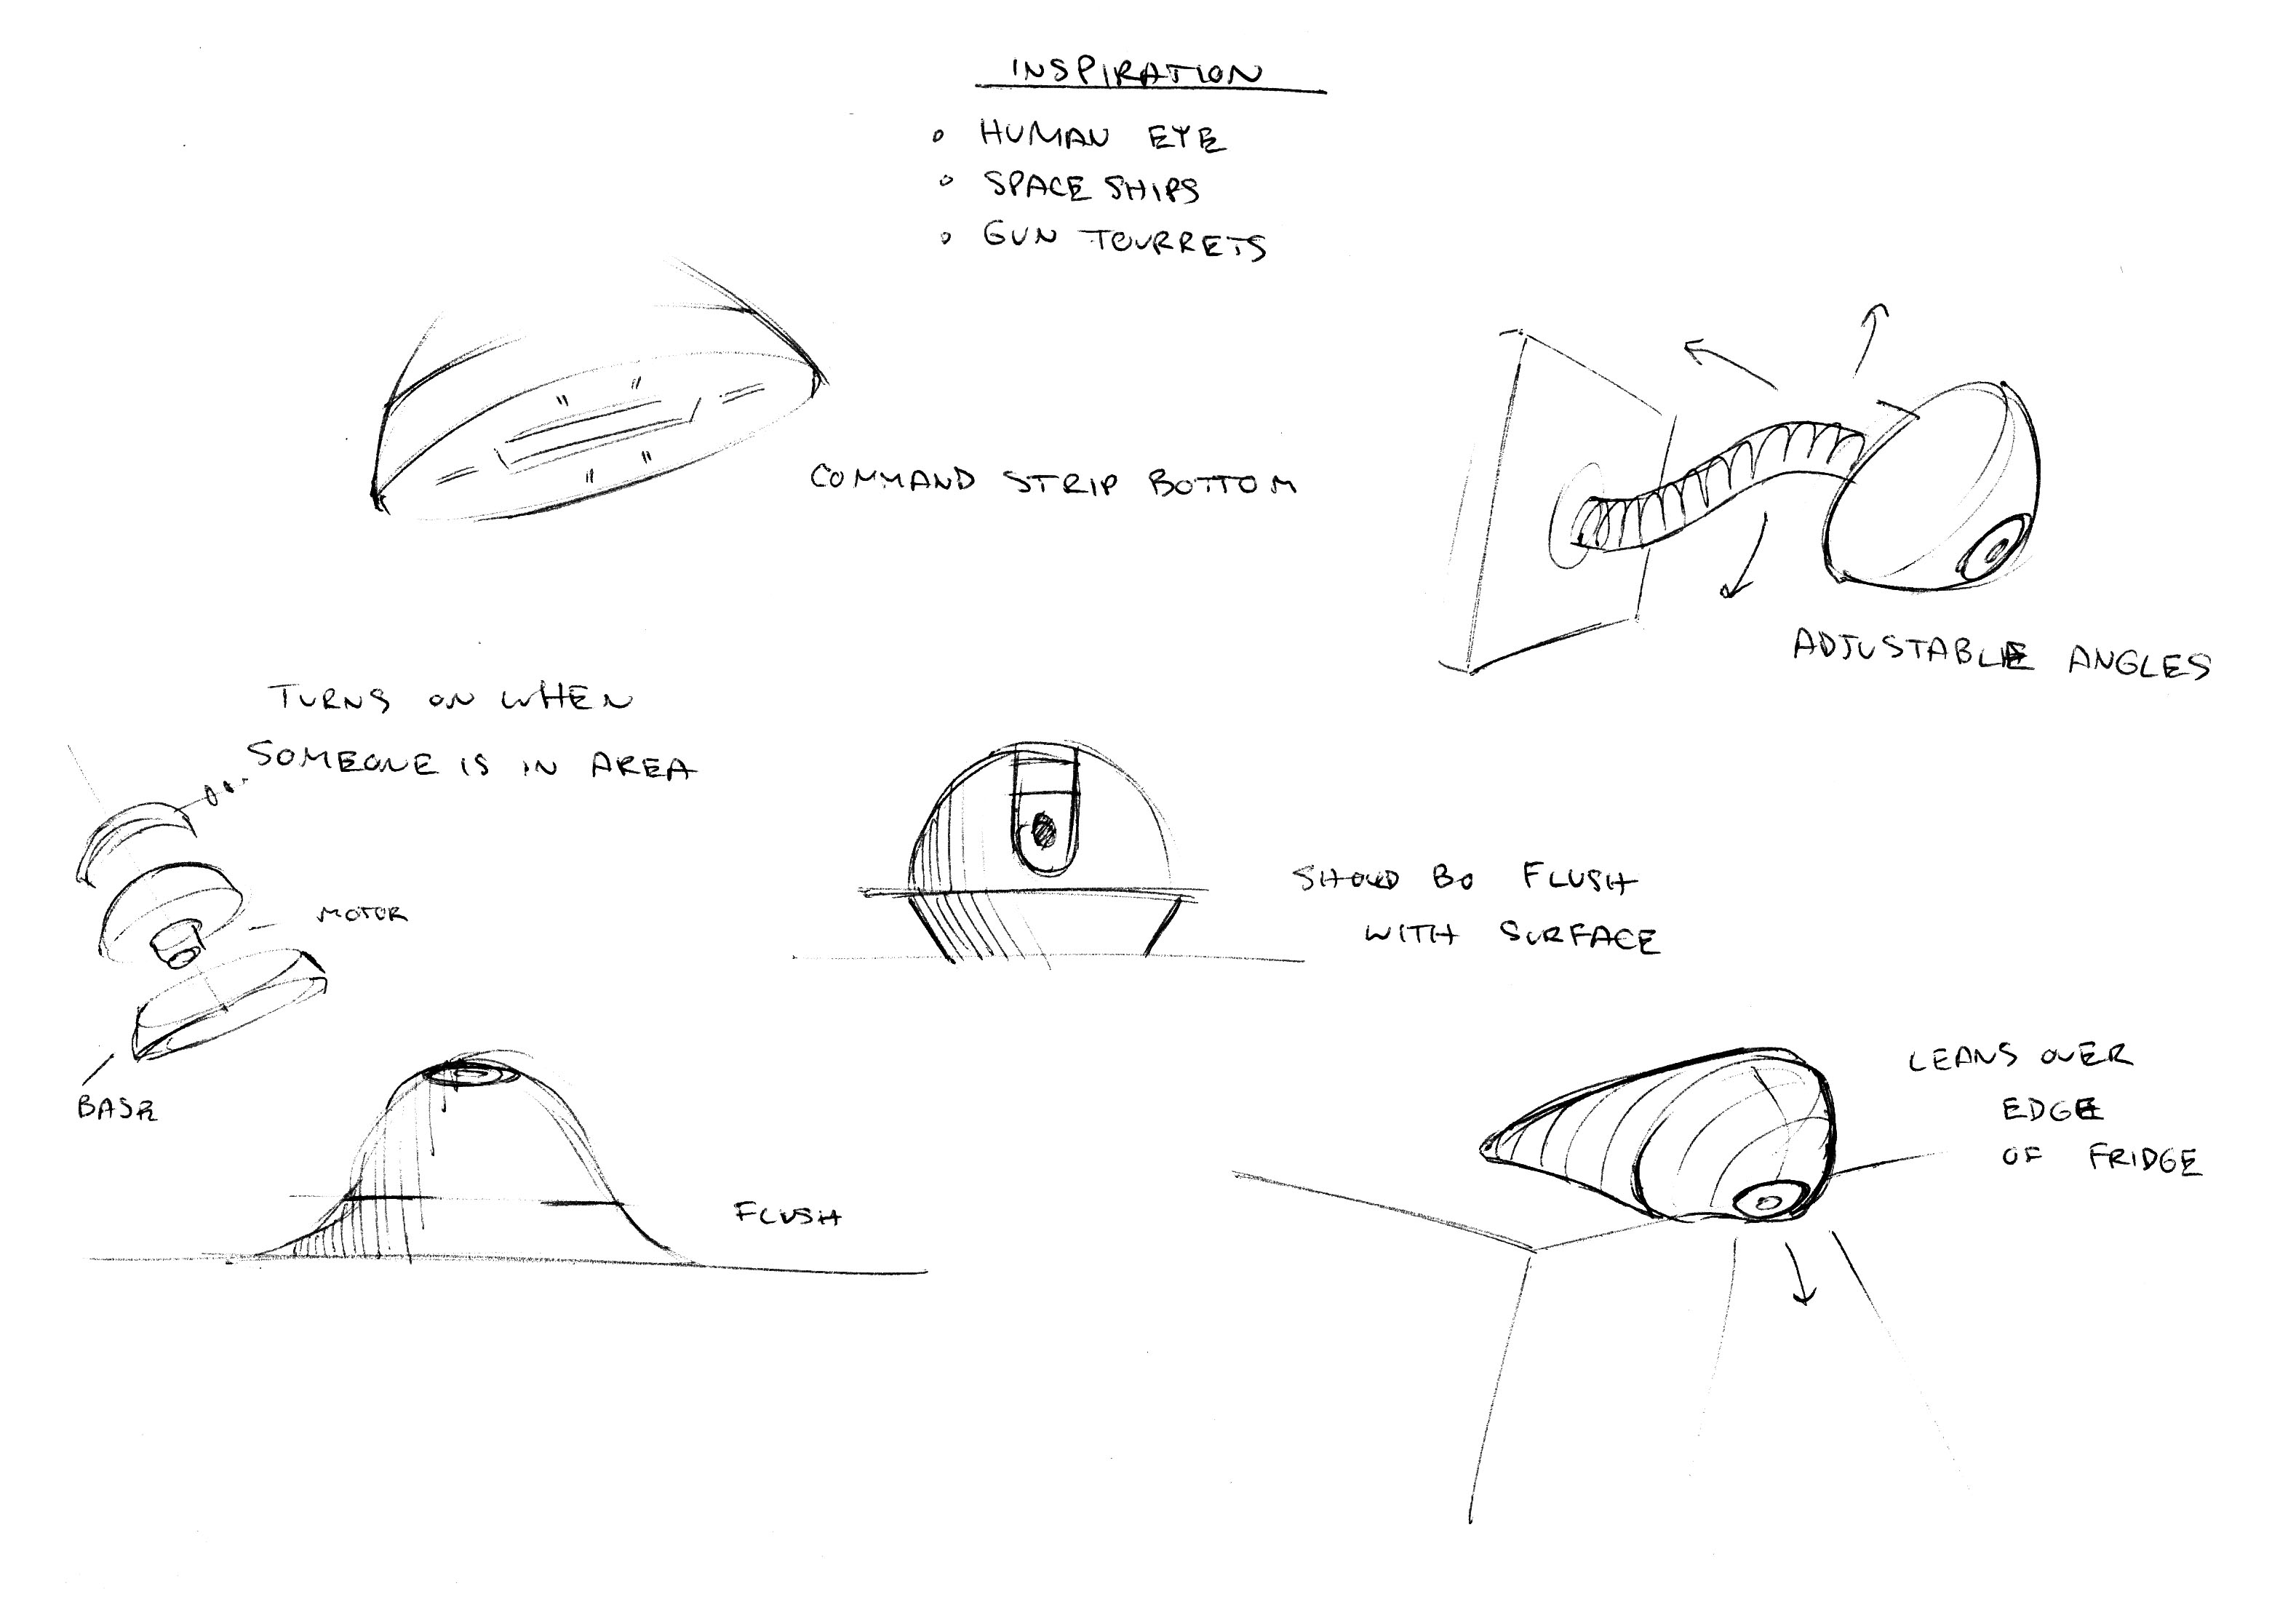 INSPIRATION
HUMAN EYE
SPACE SHIPS
GUN TOURRETS
COMMAND STRIP BOTTOM
ADJUSTABLE ANGLES
TURNS ON WHEN
SOMEONE IS IN AREA
MOTOR
BASE
SHOULD BO FLUSH
WITH SURFACE
FLUSH
LEANS OVER
EDGE
OF FRIDGE